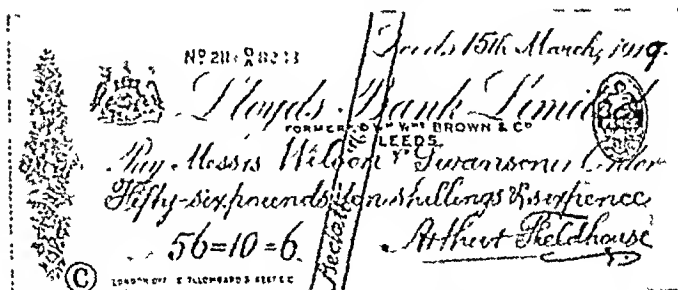 Leeds 15th March, 1919.
Lloyds Bank Limited
BROWN & Co
LEEDS.
Pay Messrs Wilson Swanson or Order
Fifty-six pounds ten shillings & sixpence
56=10=6.
Arthur Fieldhouse
©